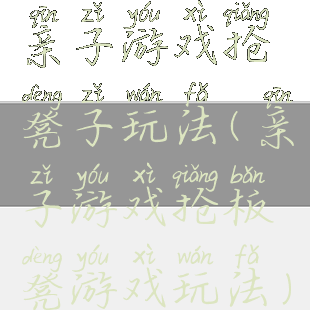 qīn zǐ yóu xì qiǎng
亲子游戏抢
dèng zǐ wán fǎ qīn
凳子玩法(亲
zǐ yóu xì qiǎng bǎn
子游戏抢板
dèng yóu xì wán fǎ
凳游戏玩法)